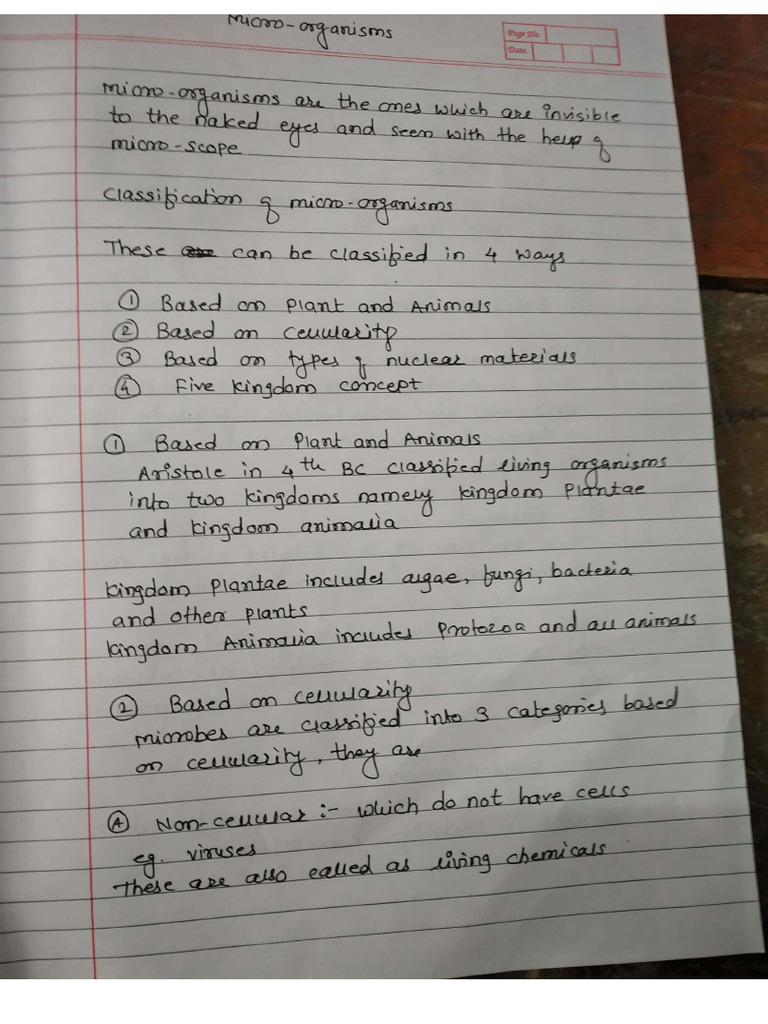 Micro-organisms
Page No.
Date
Micro-organisms are the ones which are invisible
to the naked eyes and seem with the help of
micro-scope
Classification of micro-organisms
These are can be classified in 4 ways
① Based on Plant and Animals
② Based on cellularity
③ Based on types of nuclear materials
④ Five kingdom concept
① Based on Plant and Animals
Aristole in 4th BC classified living organisms
into two kingdoms namely kingdom Plantae
and kingdom animalia
kingdom Plantae includes algae, fungi, bacteria
and other plants
kingdom Animalia includes Protozoa and all animals
② Based on cellularity
microbes are classified into 3 categories based
on cellularity, they are
Ⓐ Non-cellular :- which do not have cells
eg. viruses
These are also called as living chemicals